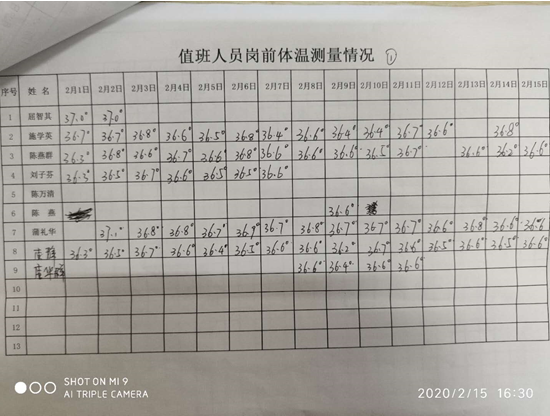 值班人员岗前体温测量情况 ①
序号 姓名 2月1日 2月2日 2月3日 2月4日 2月5日 2月6日 2月7日 2月8日 2月9日 2月10日 2月11日 2月12日 2月13日 2月14日 2月15日
1 屈智其 37.0° 37.0°
2 施学英 36.7° 36.7° 36.8° 36.6° 36.5° 36.8° 36.4° 36.6° 36.4° 36.4° 36.7° 36.6° 36.8°
3 陈燕群 36.3° 36.8° 36.6° 36.7° 36.6° 36.8° 36.6° 36.6° 36.6° 36.5° 36.7° 36.6° 36.2° 36.6°
4 刘子芬 36.3° 36.5° 36.7° 36.6° 36.5° 36.5° 36.6°
5 陈万清
6 陈燕 36.6°
7 蒲礼华 37.1° 36.8° 36.8° 36.7° 36.9° 36.7° 36.8° 36.7° 36.7° 36.7° 36.6° 36.8° 36.6° 36.6°
8 36.3° 36.5° 36.7° 36.6° 36.4° 36.5° 36.6° 36.6° 36.2° 36.7° 36.6° 36.5° 36.6° 36.5° 36.6°
9 36.6° 36.4° 36.6° 36.6°
10
11
12
13
SHOT ON MI 9
AI TRIPLE CAMERA
2020/2/15 16:30